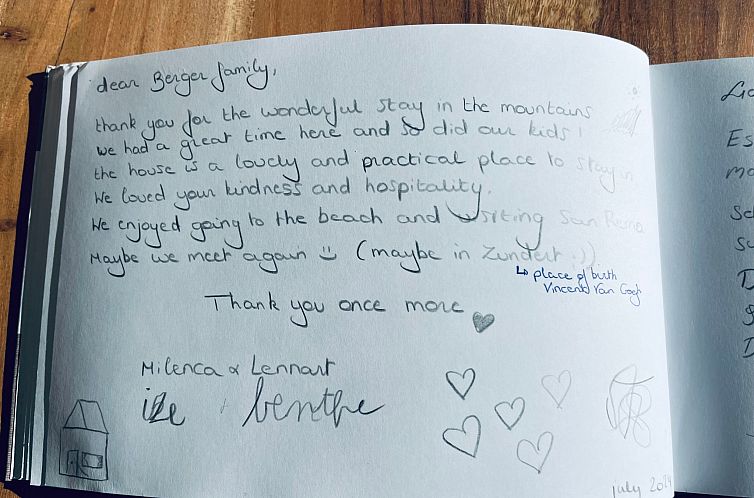 dear Berger family,
thank you for the wonderful stay in the mountains
we had a great time here and so did our kids!
the house is a lovely and practical place to stay in
We loved your kindness and hospitality.
We enjoyed going to the beach and visiting San Remo
Maybe we meet again (maybe in Zundert :)).
↳ place of birth
Vincent Van Gogh
Thank you once more
Milenca & Lennart
benthe
july
Es